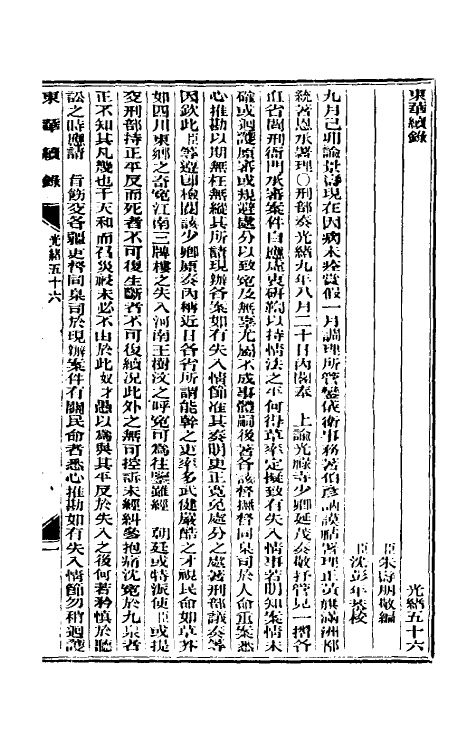 東華續錄
光緒五十六
臣朱壽朋敬編
臣沈彭年恭校
九月己卯諭景壽現在因病未痊賞假一月調理所管鑾儀衛事務著伯彥訥謨祜署理正黃旗滿洲都
統著恩承署理○刑部奏光緒九年八月二十日內閣奉 上諭光祿寺少卿延茂奏敬抒管見一摺各
直省問刑衙門承審案件自應虛衷研鞫以持情法之平何得草率定擬致有失入情事若明知案情未
確或迴護原審或規避處分以致冤及無辜尤屬不成事體嗣後著各該督撫督同臬司於人命重案悉
心推勘以期無枉無縱其所請現辦各案如有失入情節准其奏明更正寬免處分之處著刑部議奏等
因欽此臣等遵即檢閱該少卿原奏內稱近日各省所謂能幹之吏率多武健嚴酷之才視民命如草芥
如四川東鄉之奇冤江南三牌樓之失入河南王樹汶之呼冤可為往鑒雖經 朝廷或特派使臣或提
交刑部持正平反而死者不可復生斷者不可復續況此外之無可控訴未經糾參抱痛沈冤於九泉者
正不知其凡幾也干天和而召災祲未必不由於此奴才愚以為與其平反於失入之後何若矜慎於聽
訟之時應請 旨飭交各疆吏督同臬司於現辦案件有關民命者悉心推勘如有失入情節勿稍迴護
東華續錄
光緒五十六
一